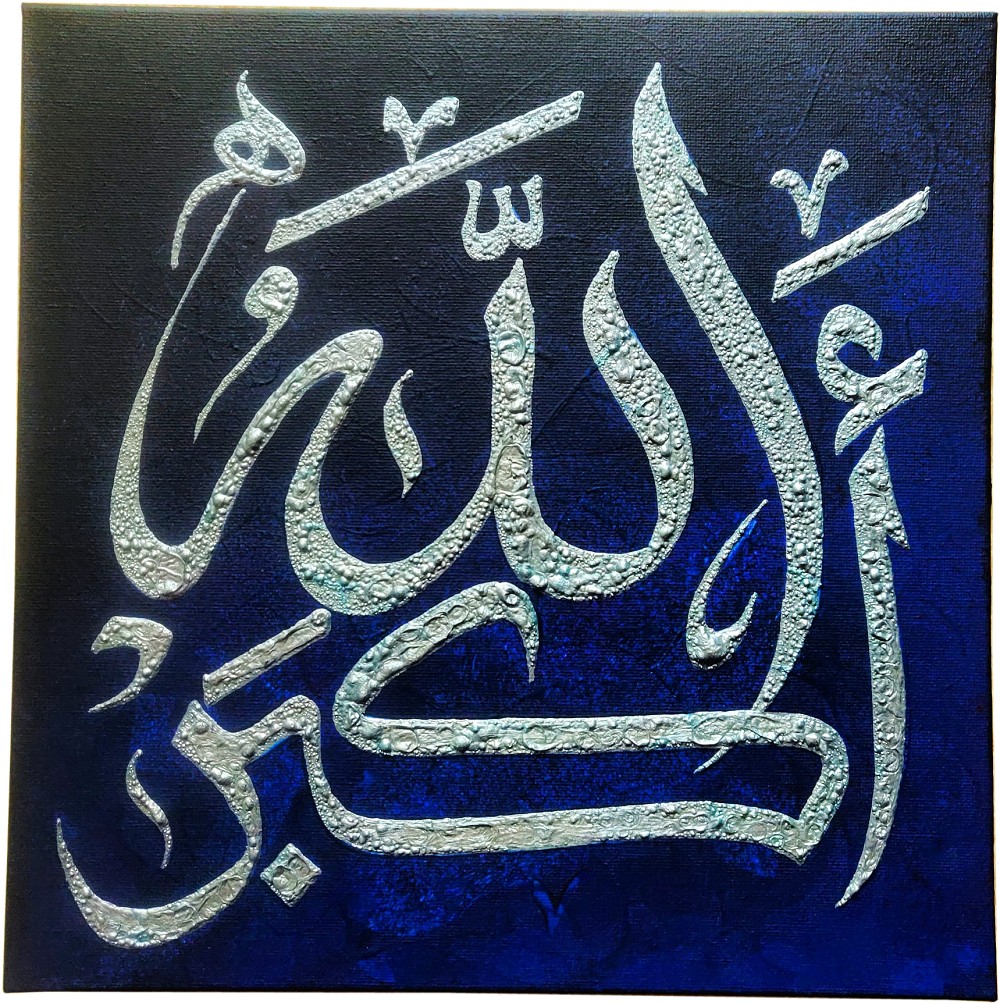 اَللّٰهُ
أَكْبَرُ